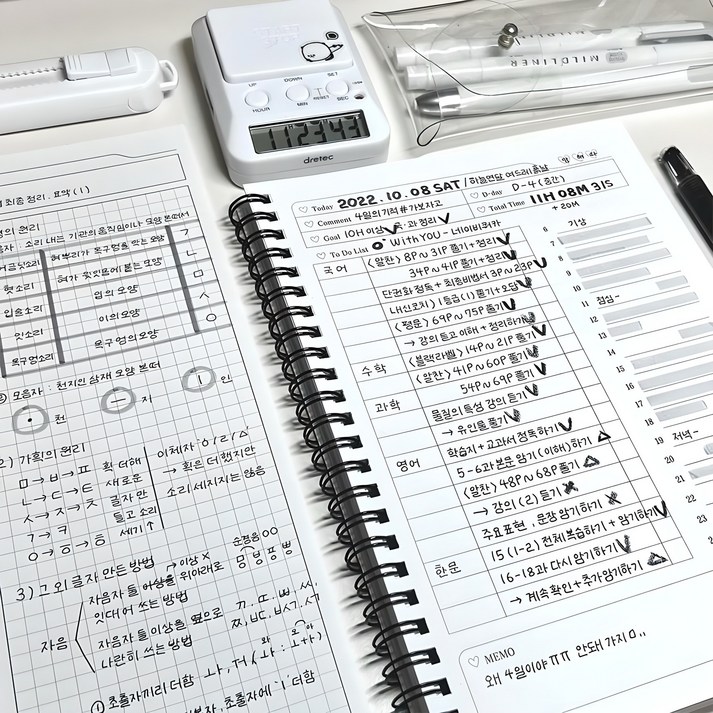 UP
DOWN
SET
HOUR
MIN
RESET
SEC
112343
dretec
MILDLINER
MILDLINER
최종 정리. 요약 (1)
의 원리
소리 내는 기관의 움직임이나 모양 본떠서
혀뿌리가 목구멍을 막는 모양 ㄱ
혓소리 혀가 윗잇몸에 붙는 모양 ㄴ
입술소리 입의 모양 ㅁ
잇소리 이의 모양 ㅅ
목구멍소리 목구멍의 모양 ㅇ
모음자 : 천지인 삼재 모양 본떠
· 천 ㅡ 지 ㅣ 인
2) 가획의 원리
ㅁ→ㅂ→ㅍ 획 더해
ㄴ→ㄷ→ㅌ 새로운
ㅅ→ㅈ→ㅊ 글자 만
ㄱ→ㅋ 들고 소리
ㅇ→ㆆ→ㅎ 세기↑
이체자 ㆁ/ㄹ/ㅿ
→ 획은 더했지만
소리 세지지는 않음
3) 그 외 글자 만든 방법
자음
자음자 둘 이상을 위아래로
→ 이상 X
잇대어 쓰는 방법
순경음
자음자 둘 이상을 옆으로
나란히 쓰는 방법
① 초출자끼리 더함
초출자에 'ㅣ' 더함
Today 2022. 10. 08 SAT / 하늘연달 여드레 흙날
Comment 4일의 기적 #가보자고
D-day D-4 (중간)
Goal 10H 이상 국·과 정리
Total Time 11H 08M 31S
+ 20M
To Do List With YOU - 네이비쿼카
국어 <알찬> 8P~31P 풀기+정리
34P~41P 풀기+정리
단권화 정독 + 최종비법서 3P~23P
내신코치 1등급(1) 풀기+오답
<평문> 69P~75P 풀기
→ 강의 듣고 이해 + 정리하기
수학 <블랙라벨> 14P~21P 풀기
<알찬> 41P~60P 풀기
54P~69P 풀기
과학 물질의 특성 강의 듣기
→ 유인물 풀기
학습지+교과서 정독하기
영어 5-6과 본문 암기(이해)하기
<알찬> 48P~68P 풀기
→ 강의 (2) 듣기
주요표현, 문장 암기하기
한문 15 (1-2) 전체 복습하기 + 암기하기
16-18과 다시 암기하기
→ 계속 확인+추가암기하기
6 기상
7
8
9
10
11 점심~
12
13
14
15
16
17
18
19 저녁~
20
21
22
23
MEMO
왜 4일이야 ㅠㅠ 안돼 가지마..